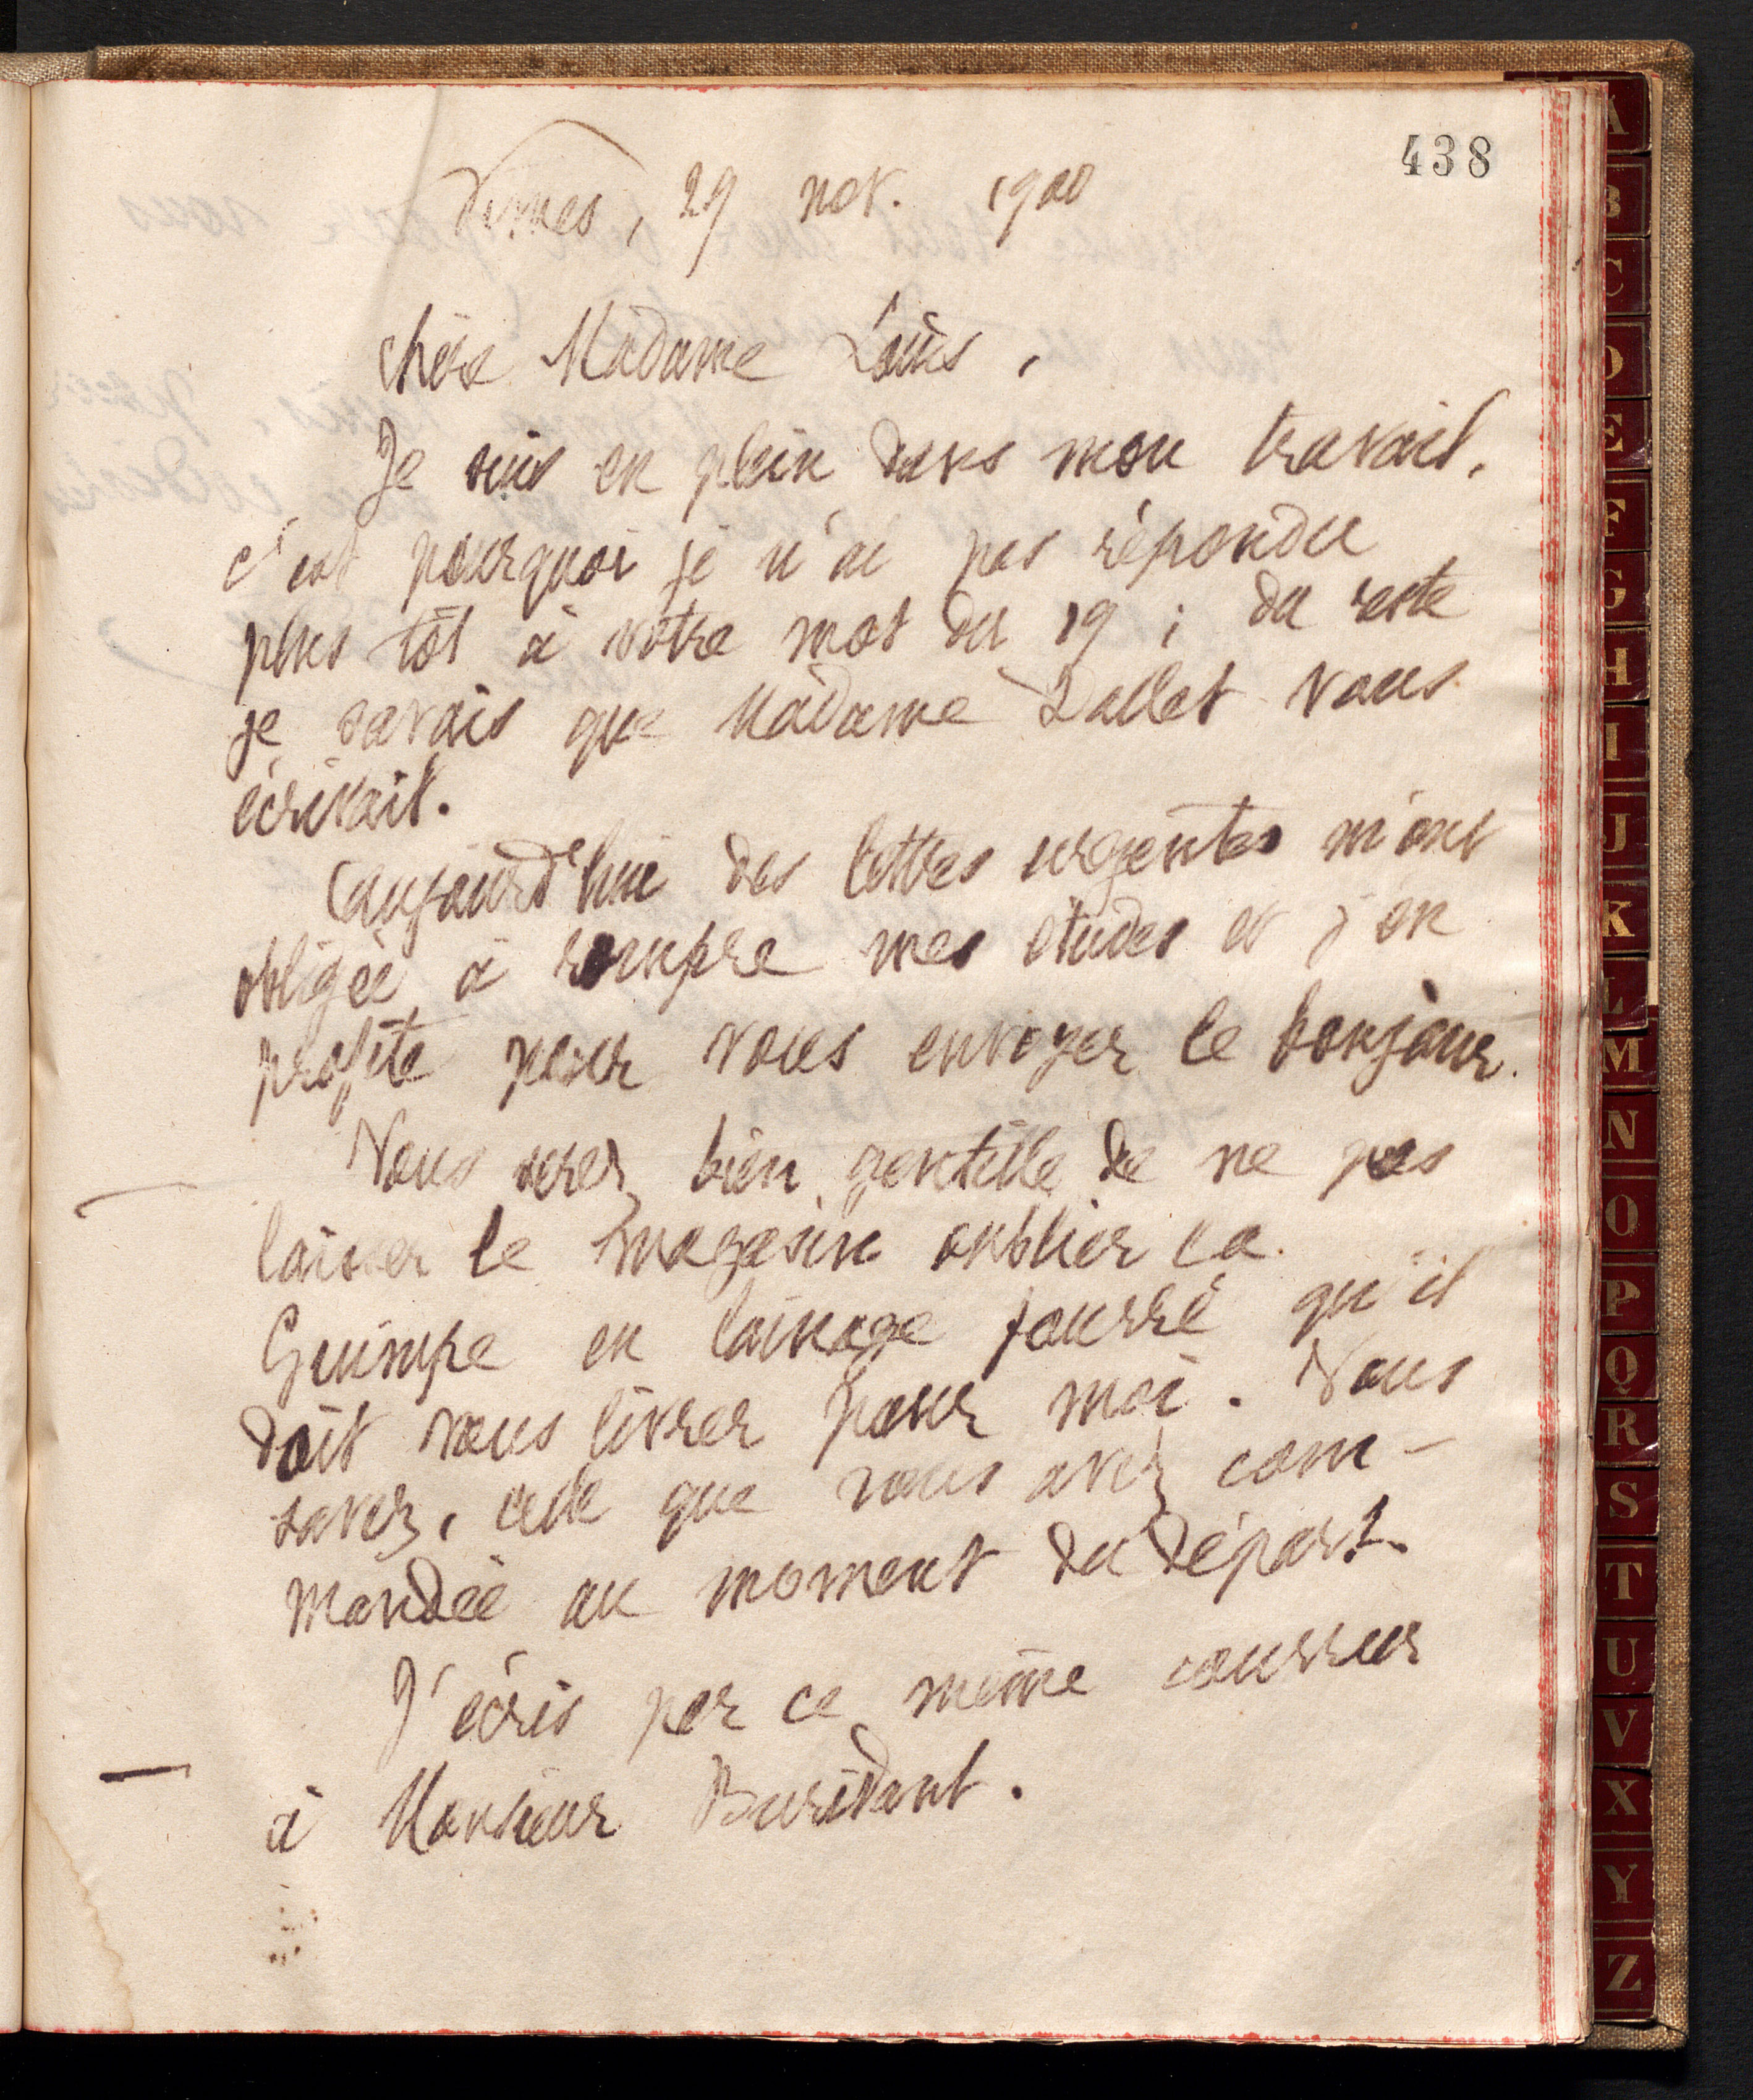 438
Nimes, 29 nov. 1900
chère Madame Louis,
Je suis en plein dans mon travail,
c'est pourquoi je n'ai pas répondu
plus tôt à votre mot du 19 ; du reste
je savais que Madame Dallet vous
écrivait.
Aujourd'hui des lettres urgentes m'ont
obligée à rompre mes études et j'en
profite pour vous envoyer le bonjour.
Vous serez bien gentille de ne pas
laisser le magasin oublier la
Guimpe en lainage fourré qu'il
doit vous livrer pour moi. Vous
savez, celle que vous avez com-
mandée au moment du départ.
J'écris par ce même courrier
à Monsieur Buridant.
A
B
C
D
E
F
G
H
I
J
K
L
M
N
O
P
Q
R
S
T
U
V
X
Y
Z